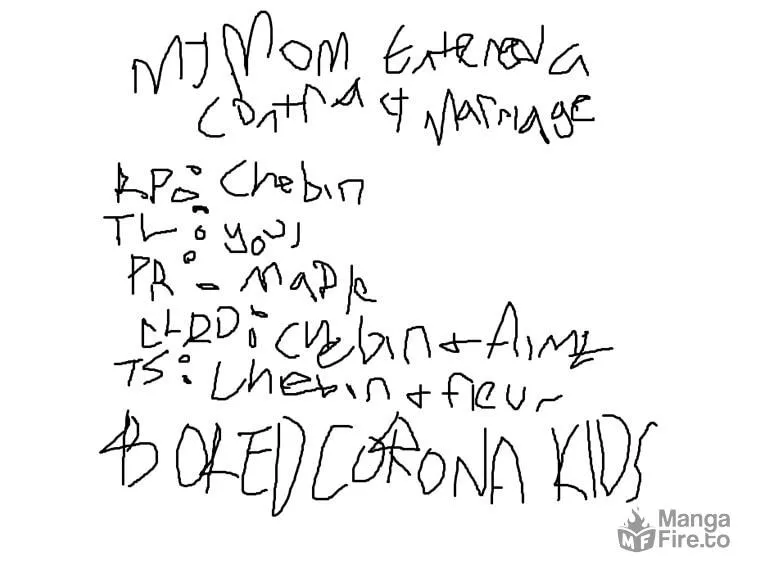 My Mom Entered a
Contract Marriage
RP: Chebin
TL: your
PR: Maple
CLRD: Chebin + Aimz
TS: Chebin + fleur
BORED CORONA KIDS
Manga
Fire.to